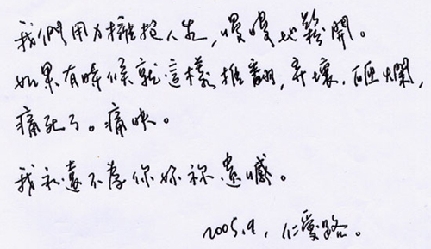 我們用力擁抱人生,慢慢地鬆開。
如果有時候就這樣推翻,弄壞,砸爛,
痛死了。痛快。
我永遠不 你妳祢遺憾。
2005.9, 仁愛路。